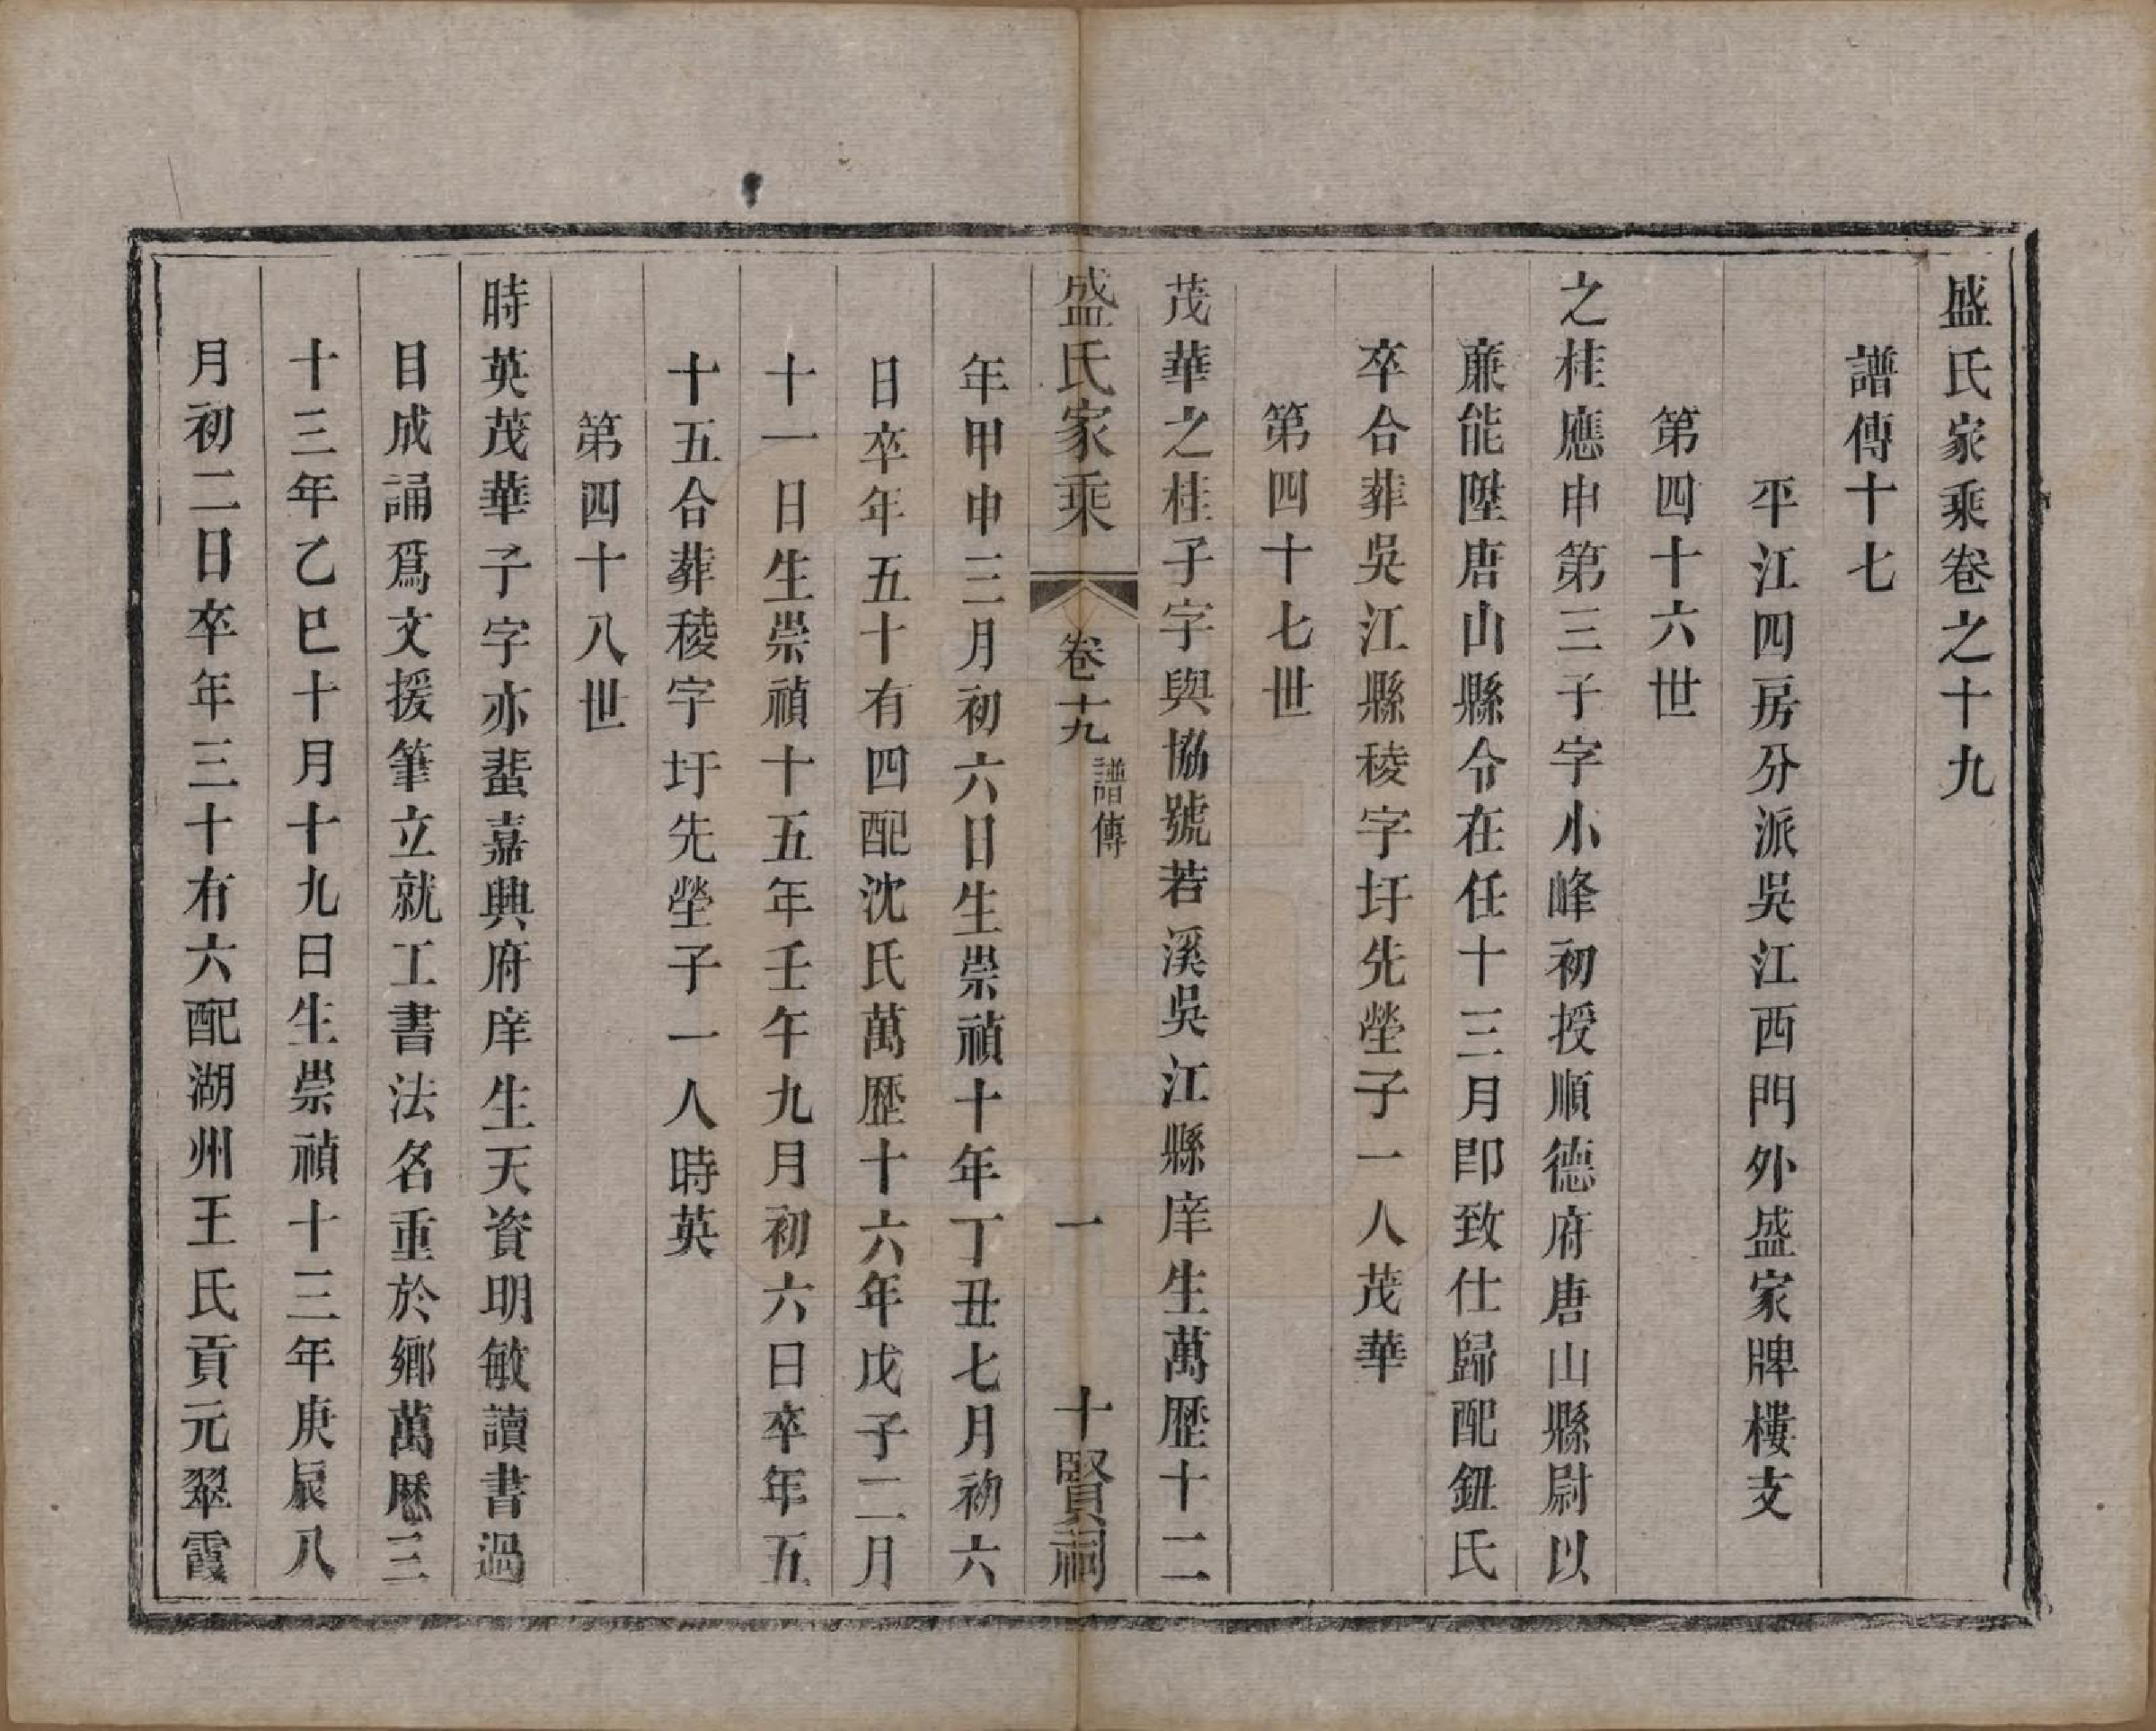 盛氏家乘卷之十九
譜傳十七
平江四房分派吳江西門外盛家牌樓支
第四十六世
之桂應申第三子字小峰初授順德府唐山縣尉以
廉能陞唐山縣令在任十三月即致仕歸配鈕氏
卒合葬吳江縣稜字圩先塋子一人茂華
第四十七世
茂華之桂子字與協號若溪吳江縣庠生萬歷十二
盛氏家乘
卷十九
譜傳
一
十賢祠
年甲申三月初六日生崇禎十年丁丑七月初六
日卒年五十有四配沈氏萬歷十六年戊子二月
十一日生崇禎十五年壬午九月初六日卒年五
十五合葬稜字圩先塋子一人時英
第四十八世
時英茂華子字亦蜚嘉興府庠生天資明敏讀書過
目成誦爲文援筆立就工書法名重於鄉萬歷三
十三年乙巳十月十九日生崇禎十三年庚辰八
月初二日卒年三十有六配湖州王氏貢元翠霞